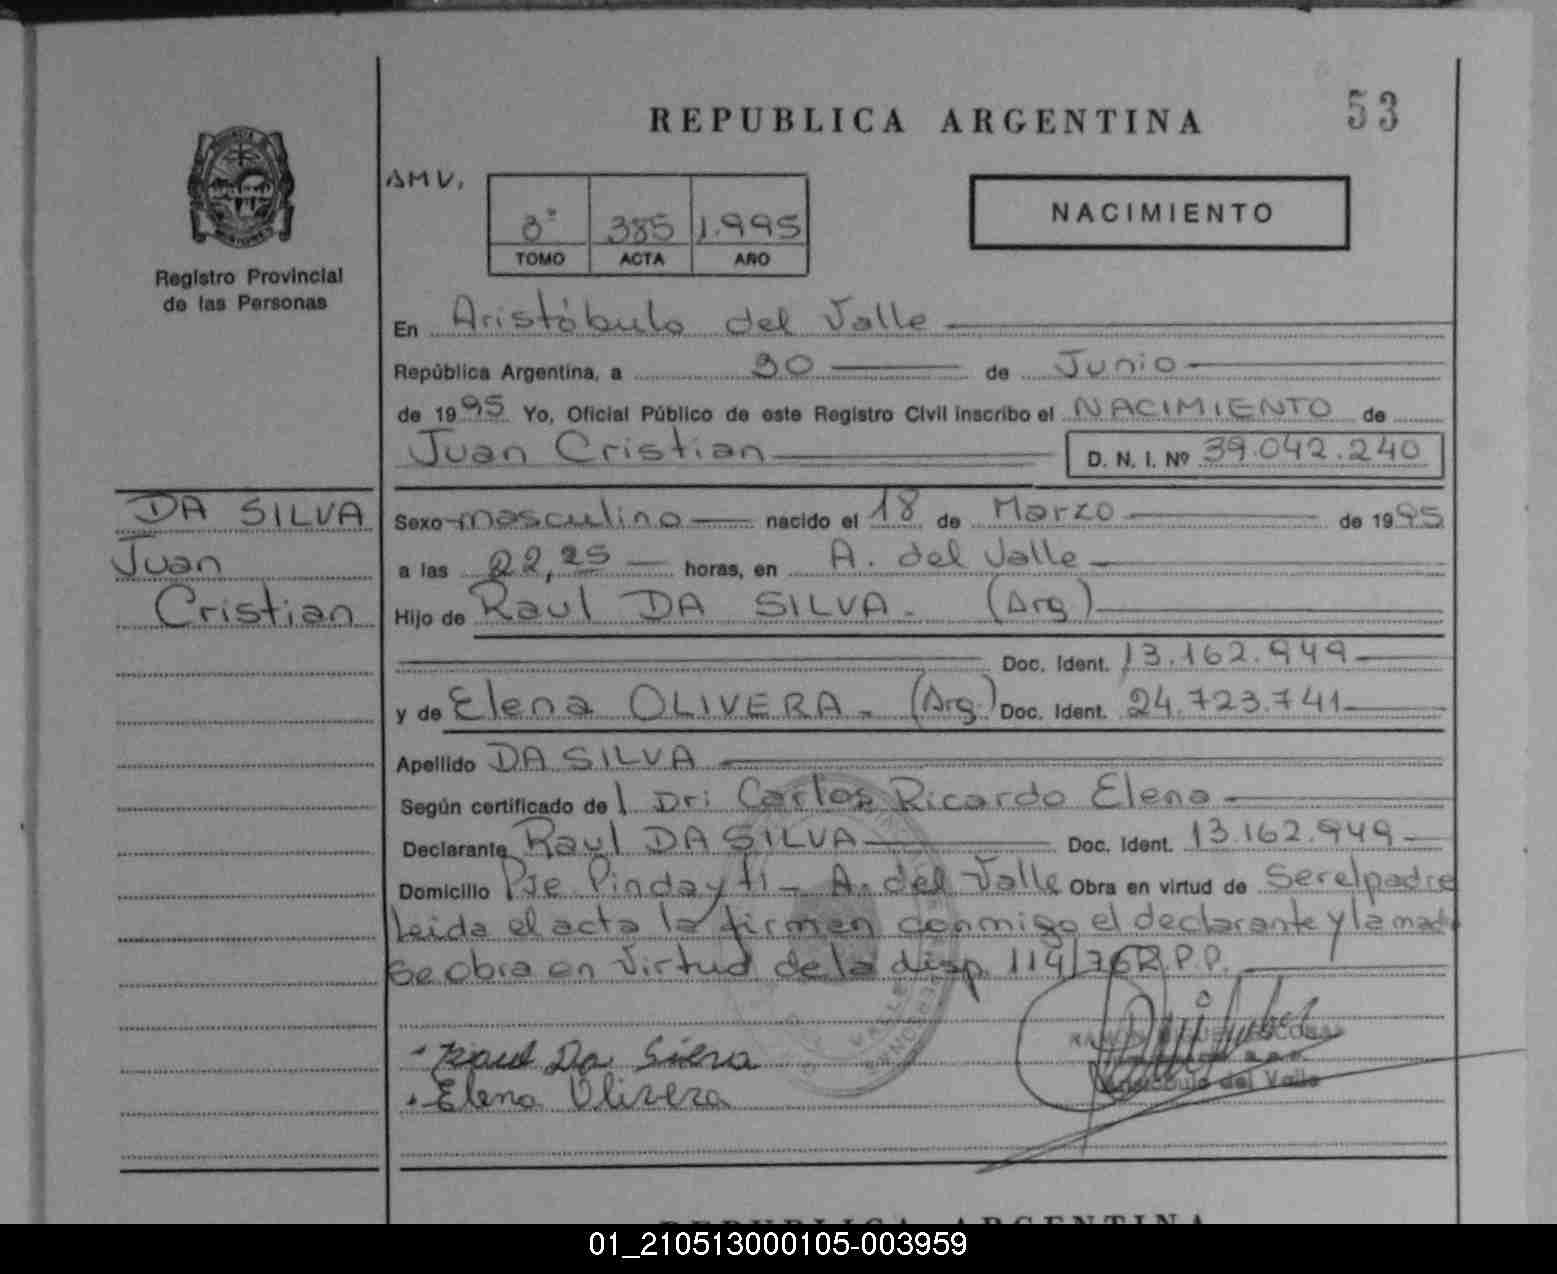 53
REPUBLICA ARGENTINA
AMV.
3° 385 1.995
TOMO ACTA AÑO
NACIMIENTO
Registro Provincial
de las Personas
En Aristóbulo del Valle
República Argentina, a 30 de Junio
de 1995 Yo, Oficial Público de este Registro Civil inscribo el NACIMIENTO de
Juan Cristian D. N. I. Nº 39.042.240
DA SILVA
Juan
Cristian
Sexo masculino nacido el 18 de Marzo de 1995
a las 22,25 horas, en A. del Valle
Hijo de Raul DA SILVA. (Arg)
Doc. Ident. 13.162.949
y de Elena OLIVERA. (Arg.) Doc. Ident. 24.723.741
Apellido DA SILVA
Según certificado del Dr: Carlos Ricardo Elena
Declarante Raul DA SILVA Doc. Ident. 13.162.949
Domicilio Pje Pindayti - A. del Valle Obra en virtud de Ser el padre
Leida el acta la firman conmigo el declarante y la mad
Se obra en virtud de la disp. 114/76 R.P.P.
Raul Da Silva
Elena Olivera
del Valle
REPUBLICA ARGENTINA
01_210513000105-003959